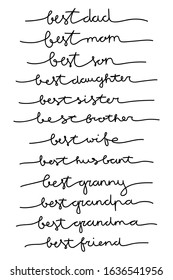 best dad
best mom
best son
best daughter
best sister
best brother
best wife
best husbant
best granny
best grandpa
best grandma
best friend
shutterstock.com · 1636541956